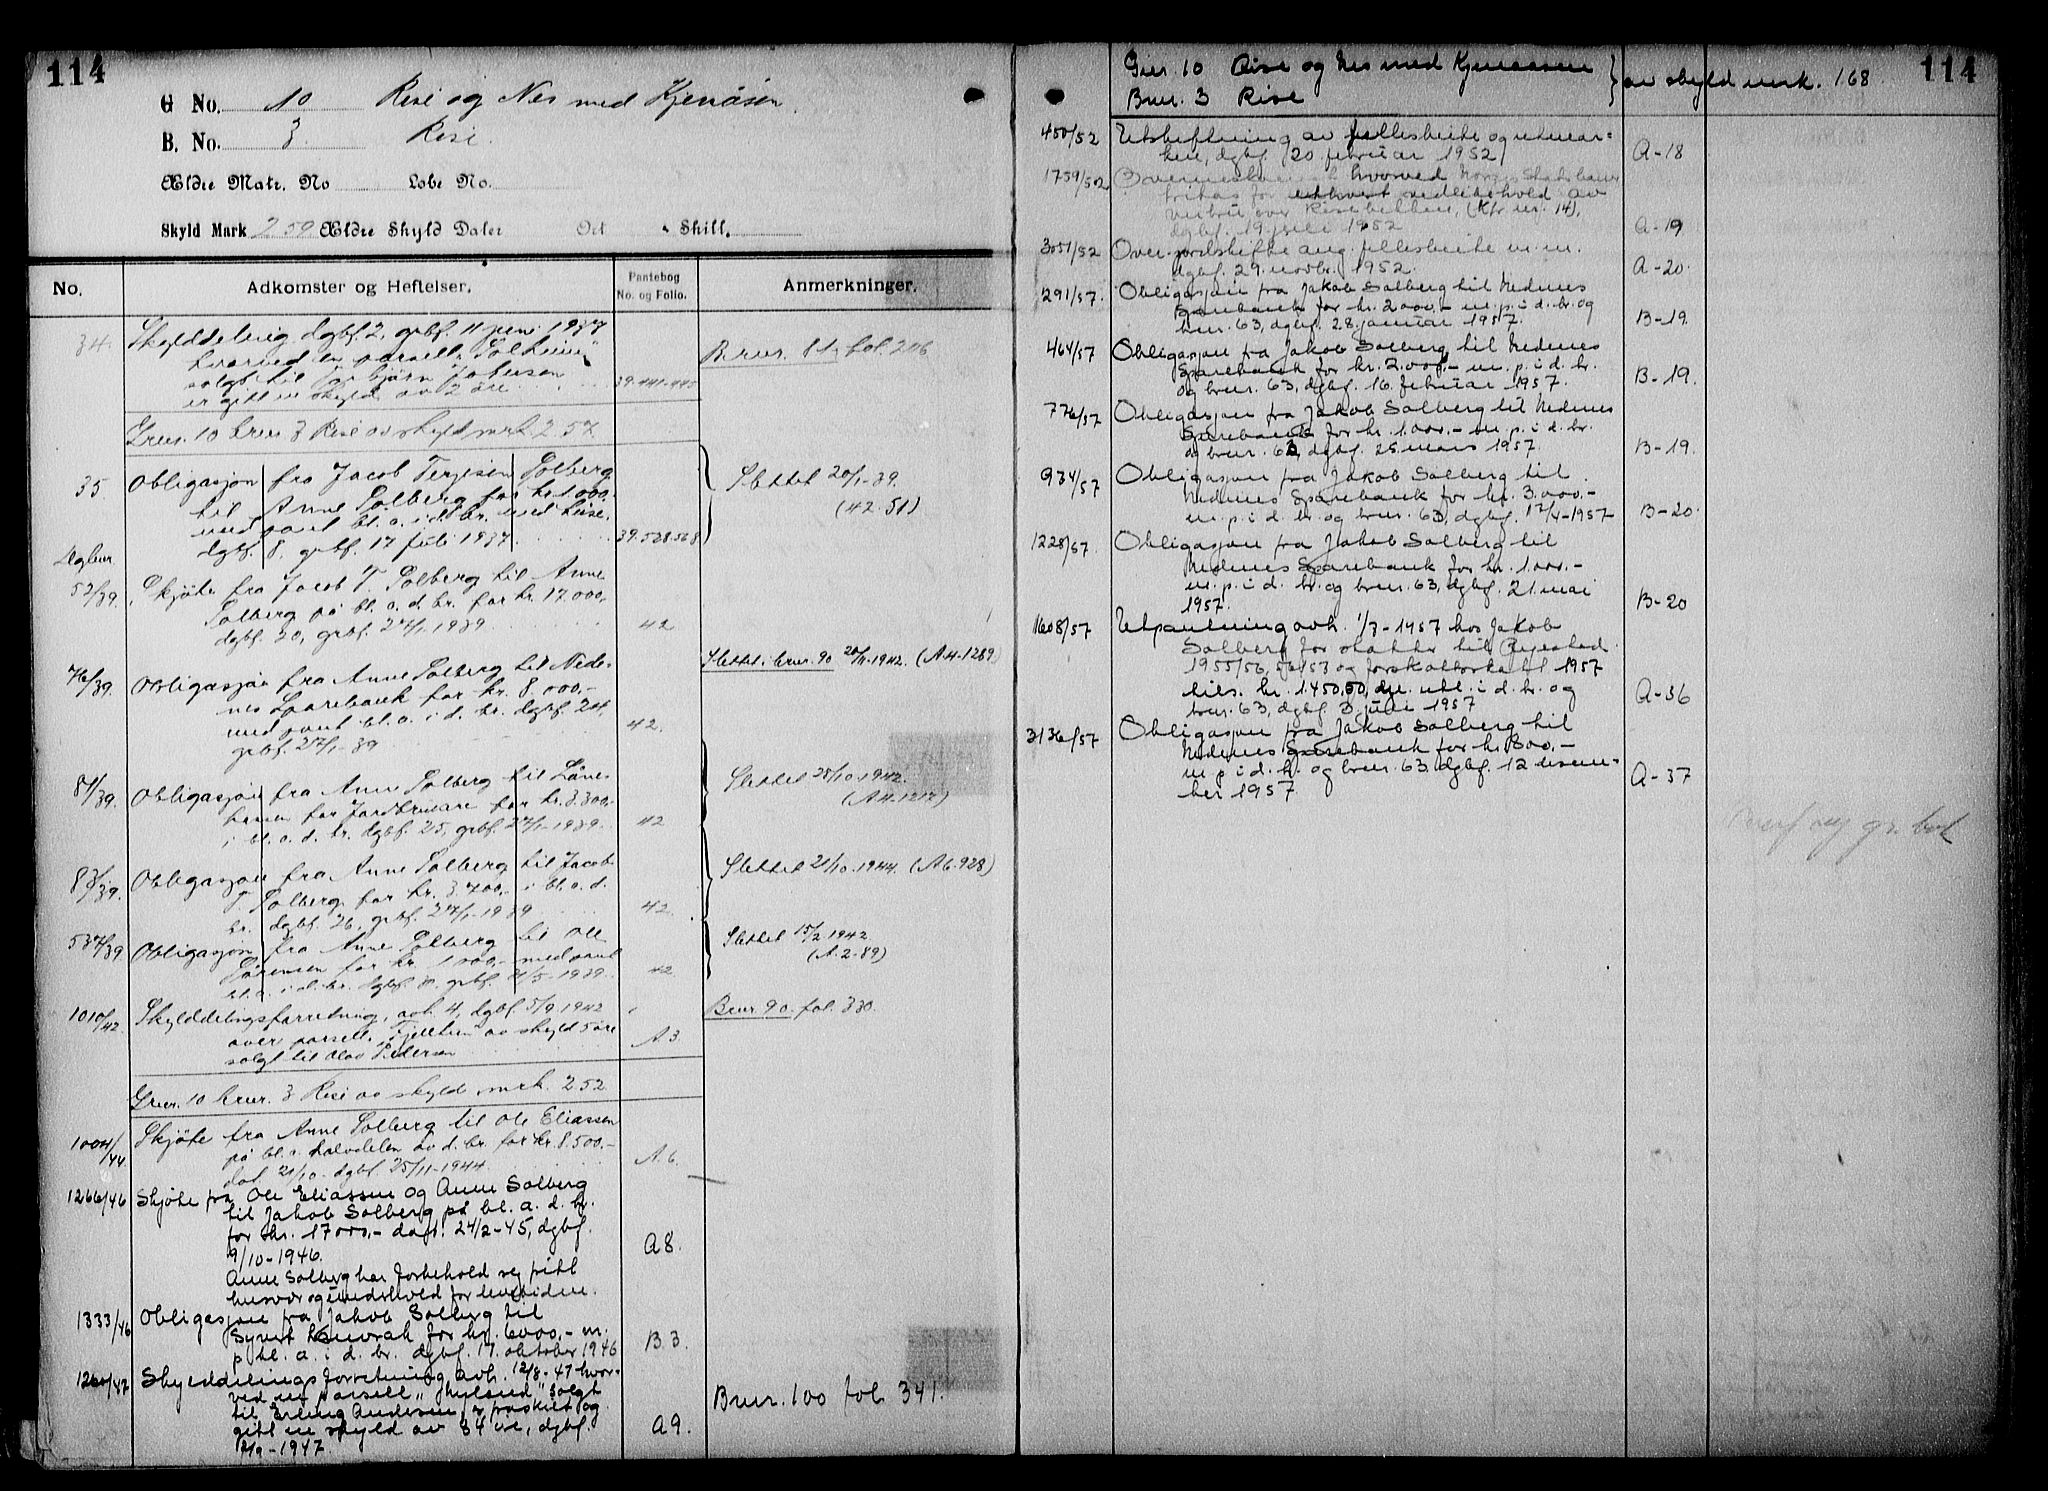 114
G No. 10 Rise og Nes med Kjenåsen.
B. No. 3 Rise.
Ældre Matr. No Løbe No.
Skyld Mark 2 59 Ældre Skyld Daler Ort Skill.
No. Adkomster og Heftelser. Pantebog No. og Folio. Anmerkninger.
34. Skylddeling dgbf. 2, grbf. 11 juni 1937
hvorved en parsell „Solheim"
solgt til Torbjørn Jakobsen
er gitt en skyld av 2 øre 39.441-445
Brnr. 81, fol. 246
Gnr. 10 brnr 3 Rise av skyld mrk. 2 57
35 Obligasjon fra Jacob Terjesen Solberg
til Anne Solberg for kr. 1000.
med pant bl. a. i d. br. med
dgbf. 8, grbf. 17 juli 1937 39.528.568
Slettet 20/1-39.
(42-51)
Dgbnr.
52/39. Skjøte fra Jacob T. Solberg til Anne
Solberg på bl. a. d. br. for kr. 17.000,
dgbf. 20, grbf. 27/1-1939 42
76/39. Obligasjon fra Anne Solberg til Nede-
nes Sparebank for kr. 8.000,-
med pant bl. a. i d. br. dgbf. 24,
grbf. 27/1-39 42.
Slettet i brnr. 90 20/11-1942. (A.4-1289)
81/39. Obligasjon fra Anne Solberg til Låne-
kassen for Jordbrukere for kr. 3.300,-
i bl. a. d. br. dgbf. 25, grbf. 27/1-1939. 42
Slettet 28/10-1942.
(A.4-1217)
83/39. Obligasjon fra Anne Solberg til Jacob
T. Solberg for kr. 3.700,- i bl. a. d.
br. dgbf. 26, grbf. 27/1-1939 42.
Slettet 21/10-1944. (A6-928)
537/39 Obligasjon fra Anne Solberg til Ole
Sørensen for kr. 1.000,- med pant
bl. a. i d. br. dgbf. grbf. 5-1939. 42
Slettet 15/2 1942
(A-2-89)
1010/42 Skylddelingsforretning, avh. 4, dgbf. 5/9-1942
over parsell „Fjellheim" av skyld 5 øre
solgt til Olav Pedersen A3
Brnr 90. fol. 330.
Gnr. 10 brnr. 3 Rise av skyld mrk. 2 52
1004/44. Skjøte fra Anne Solberg til Ole Eliassen
på bl. a. halvdelen av d. br. for kr. 8.500,-
dat. 21/10- dgbf. 25/11-1944. A.6.
1266/46 Skjøte fra Ole Eliassen og Anne Solberg
til Jakob Solberg på bl. a. d. br.
for kr. 17000,- dat. 24/2-45, dgbf.
9/10-1946. A8.
Anne Solberg har forbehold sig fritt
husvær og underhold for levetiden.
1333/46 Obligasjon fra Jakob Solberg til
Syvert for kr. 6000,- m.
p bl. a. i d. br. dgbf. 17. oktober 1946 B.3.
/47 Skylddelingsforretning avh. 12/8-47 hvor-
ved en parsell „ " solgt
til Erling Andersen, er fraskilt og
gitt en skyld av 84 øre, dgbf.
/9-1947. A9.
Brnr. 100 fol 341.
Gnr. 10 Rise og Nes med Kjenaasen
Bnr. 3 Rise } av skyld mrk. 1 68. 114
450/52 Utskiftning av fellesbeite og utmar-
ken, dgbf. 20 februar 1952 A-18
1759/52 hvorved Norges Statsbaner
fritas for ethvert vedlikehold av
veibru over Risebekken, (Kfr nr. 14),
dgbf. 19 juli 1952 A-19
3051/52 Over-jordskifte ang. fellesbeite m.m.
dgbf. 29. novbr. 1952. A-20.
291/57. Obligasjon fra Jakob Solberg til Nedenes
Sparebank for kr. 2000,- m. p. i d. br. og
bnr. 63, dgbf. 28. januar 1957. B-19
464/57 Obligasjon fra Jakob Solberg til Nedenes
Sparebank for kr. 2.000,- m. p. i d. br.
og bnr. 63, dgbf. 16. februar 1957. B-19.
776/57 Obligasjon fra Jakob Solberg til Nedenes
Sparebank for kr. 1.000.- m. p. i d. br.
og bnr. 63, dgbf. 25. mars 1957. B-19.
934/57 Obligasjon fra Jakob Solberg til
Nedenes Sparebank for kr. 3.000.-
m. p. i d. br. og bnr. 63, dgbf. 17/4-1957 B-20.
1228/57. Obligasjon fra Jakob Solberg til
Nedenes Sparebank for kr. 1.000.-
m. p. i d. br. og bnr. 63, dgbf. 21. mai
1957. B-20
1608/57 Utpantning avh. 1/7-1957 hos Jakob
Solberg for skatter til Øyestad
1955/56, 52/53 og forskottsskatt 1957
tils. kr. 1.450,50, utl. i d. br. og
bnr. 63, dgbf. 3 juli 1957 A-36
3136/57 Obligasjon fra Jakob Solberg til
Nedenes Sparebank for kr. 800,-
m p i d. br. og bnr. 63. dgbf. 12 novem-
ber 1957 A-37
ny gr. bok